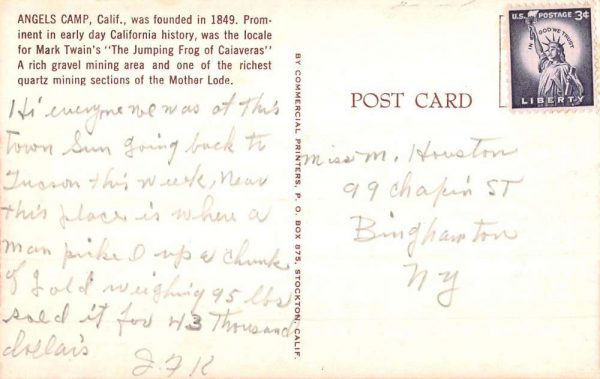 ANGELS CAMP, Calif., was founded in 1849. Prom-
inent in early day California history, was the locale
for Mark Twain's "The Jumping Frog of Caiaveras"
A rich gravel mining area and one of the richest
quartz mining sections of the Mother Lode.
Hi everyone we was at this
Town Sun going back to
Tucson this week, Near
this place is where a
man picked up a chunk
of Gold weighing 95 lbs
sold it for 43 Thousand
dollars
J.F.K
BY COMMERCIAL PRINTERS, P. O. BOX 875, STOCKTON, CALIF.
POST CARD
U.S. POSTAGE 3¢
IN GOD WE TRUST
LIBERTY
Miss M. Houston
99 Chapin ST
Binghamton
NY